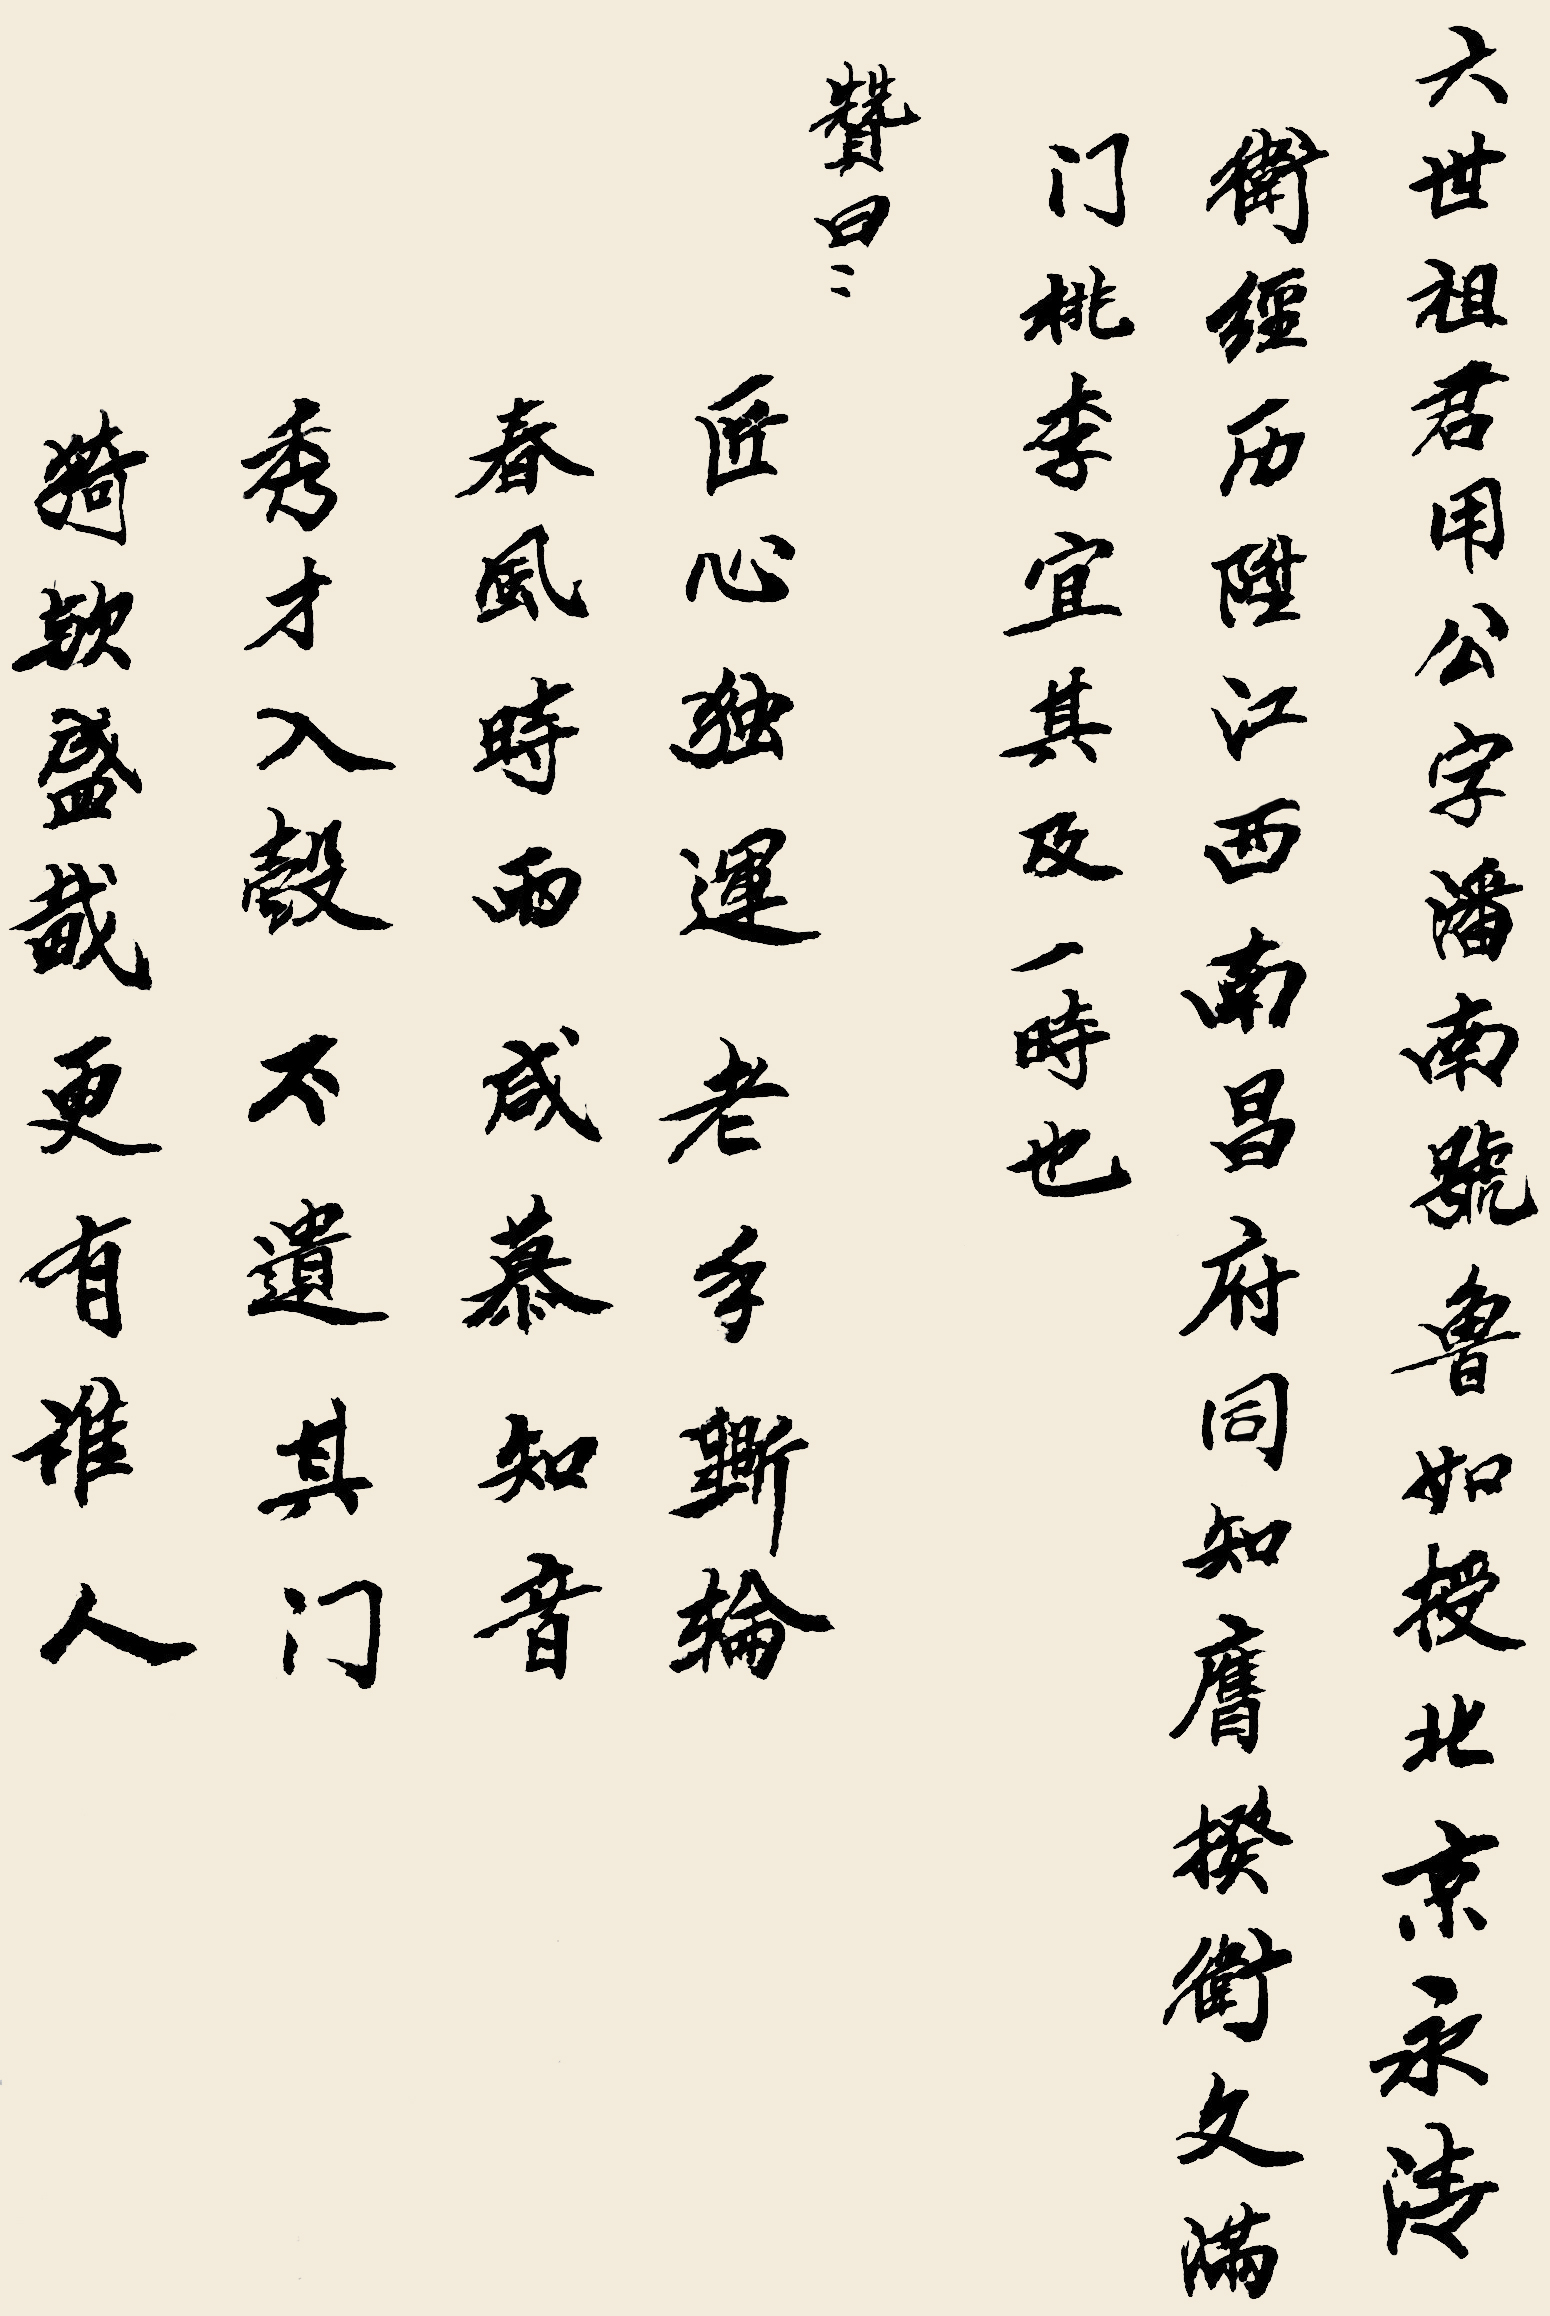 六世祖君用公字潘南號魯如授北京永清
衛經历陞江西南昌府同知膺揆衛文滿
门桃李宜其及一時也
贊曰：
匠心独運老手斲輪
春風時雨咸慕知音
秀才入彀不遺其门
猗欤盛哉更有谁人